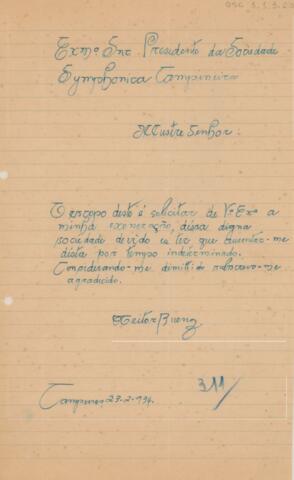 OSC 3.1.3.2
Exmº Snr. Presidente da Sociedade
Symphonica Campineira
Illustre Senhor.
O escopo deste é solicitar de Vª Exª a
minha exoneração, dessa digna
sociedade devido eu ter que ausentar-me
desta por tempo indeterminado.
Considerando-me demittido subscrevo-me
agradecido.
Heitor Bueno
311/
Campinas 23-2-934.